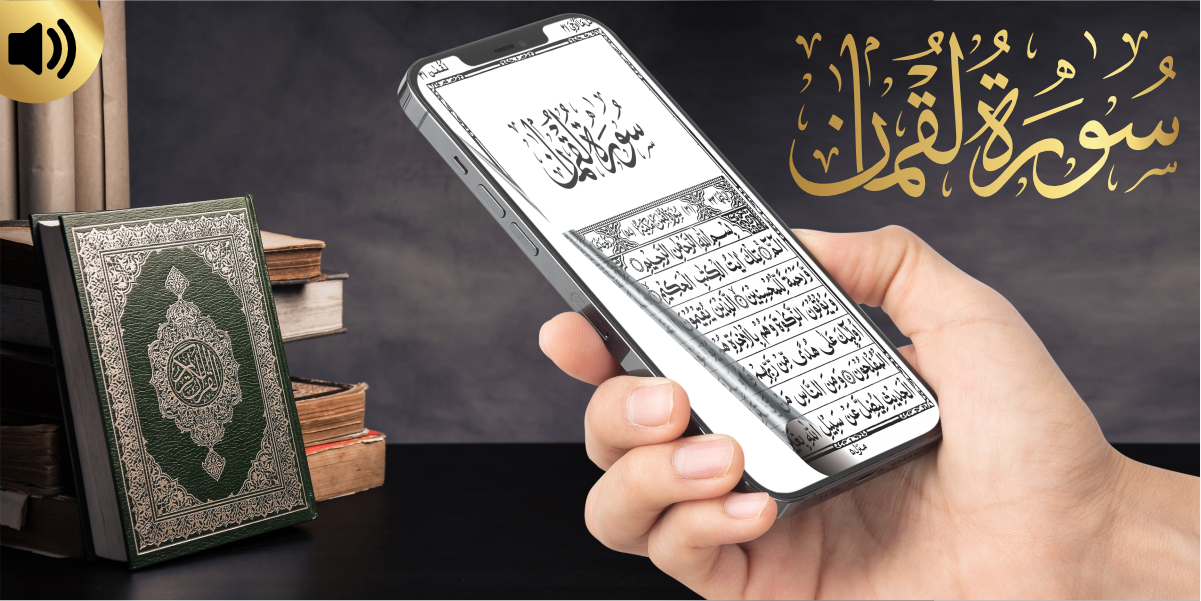 سُورَةُ لُقْمٰن
لقمٰن ٣١
سُورَةُ لُقْمٰن
بِسْمِ اللّٰهِ الرَّحْمٰنِ الرَّحِيْمِ
الٓمّٓ تِلْكَ اٰيٰتُ الْكِتٰبِ الْحَكِيْمِ
وَّرَحْمَةً لِّلْمُحْسِنِيْنَ الَّذِيْنَ يُقِيْمُوْنَ
وَيُؤْتُوْنَ الزَّكٰوةَ وَهُمْ بِالْاٰخِرَةِ هُمْ
عَلٰى هُدًى مِّنْ رَّبِّهِمْ
الْمُفْلِحُوْنَ وَمِنَ النَّاسِ
الْحَدِيْثِ لِيُضِلَّ عَنْ سَبِيْلِ اللّٰهِ
القرآن الكريم